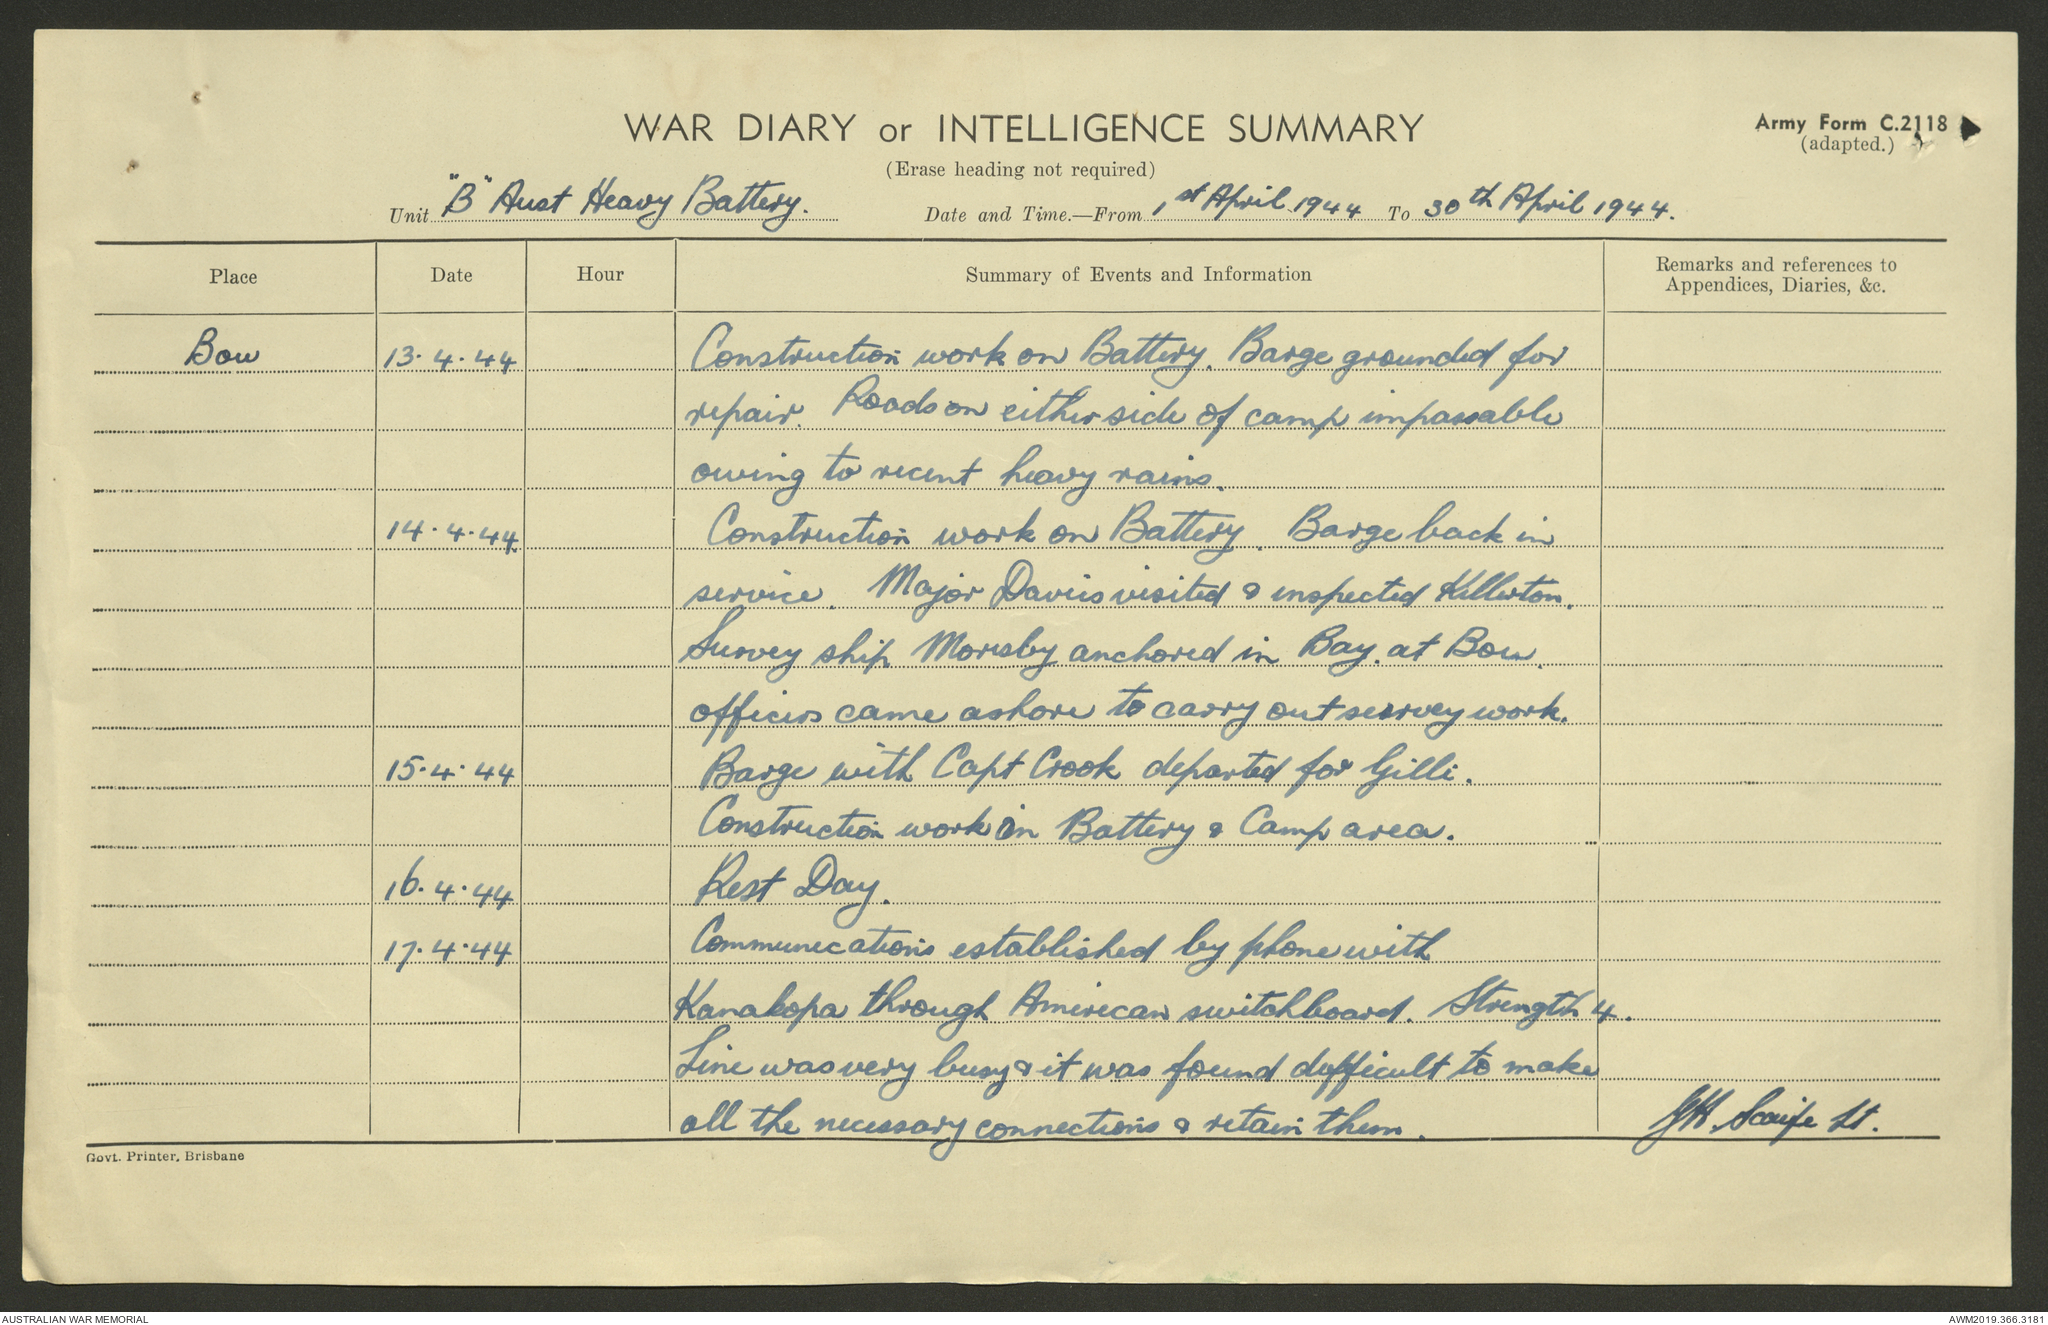 WAR DIARY or INTELLIGENCE SUMMARY
Army Form C.2118
(adapted.)
(Erase heading not required)
Unit "B" Aust Heavy Battery. Date and Time.—From 1st April 1944 To 30th April 1944.
Place Date Hour Summary of Events and Information Remarks and references to
Appendices, Diaries, &c.
Bou 13.4.44 Construction work on Battery. Barge grounded for
repair. Roads on either side of camp impassable
owing to recent heavy rains.
14.4.44. Construction work on Battery. Barge back in
service. Major Davies visited & inspected Killerton.
Survey ship Moresby anchored in Bay at Bou.
officers came ashore to carry out survey work.
15.4.44 Barge with Capt Crook departed for Gilli.
Construction work in Battery & Camp area.
16.4.44 Rest Day.
17.4.44 Communications established by phone with
Kanakopa through American switchboard. Strength 4.
Line was very busy & it was found difficult to make
all the necessary connections & retain them. Scaife Lt.
Govt. Printer, Brisbane
AUSTRALIAN WAR MEMORIAL AWM2019.366.3181